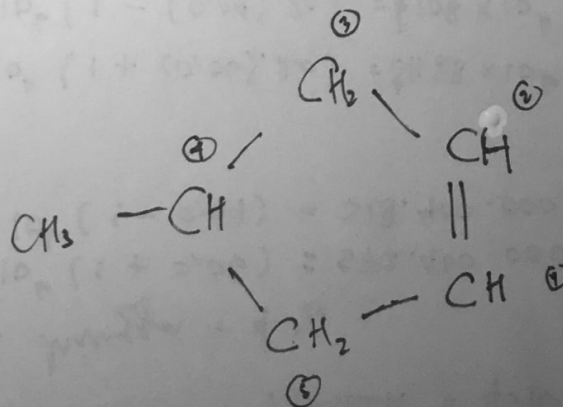 ③
CH₂
②
CH
④
CH₃ — CH
CH
①
CH₂
⑤